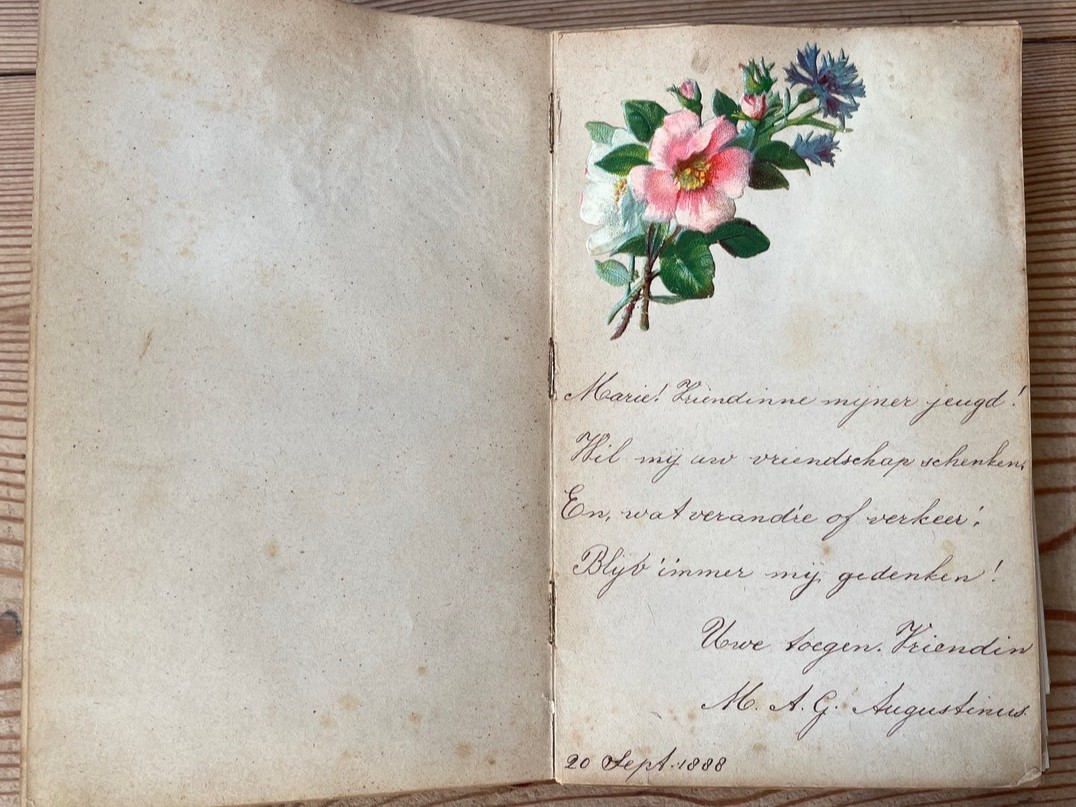 Marie! Vriendinne mijner jeugd!
Wil mij uw vriendschap schenken,
En, wat verandre of verkeer',
Blijv' immer mij gedenken!
Uwe toegen. Vriendin
M. A. G. Augustinus.
20 Sept. 1888